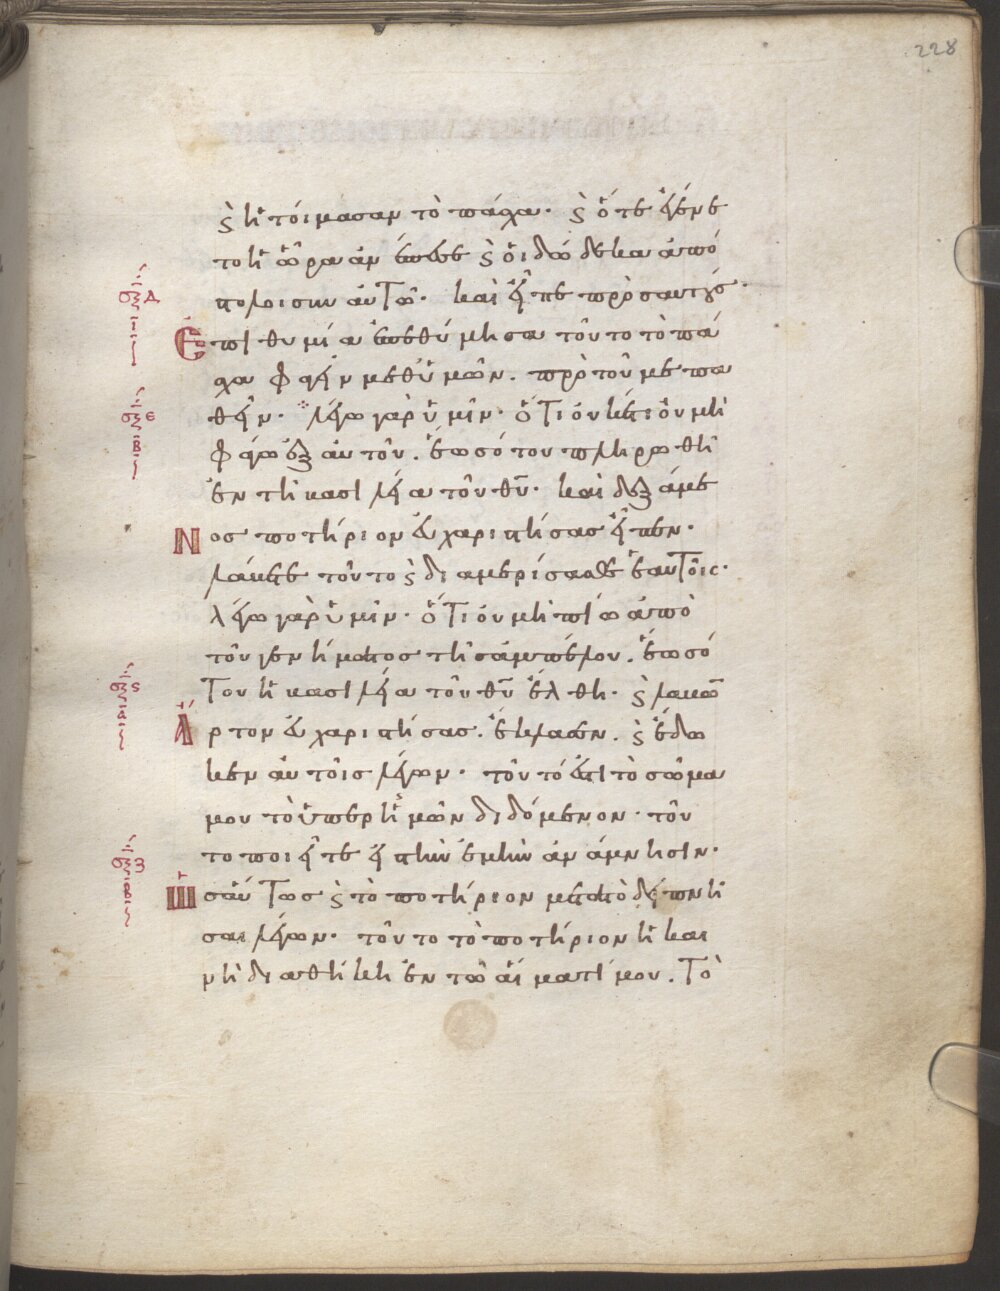 228
ϛ ἡτοίμασαν τὸ πάσχα· ϛ ὅτε ἐγένε
το ἡ ὥρα ἀνέπεσε ϛ οἱ δώδεκα ἀπό
στολοι σὺν αὐτῶ· καὶ εἶπε πρὸς αὐτούς·
σξδ
ι
Ἐπιθυμία ἐπεθύμησα τοῦτο τὸ πάσ
χα φαγεῖν μεθ' ὑμῶν. πρὸ τοῦ με πα
σξε
β
θεῖν· λέγω γὰρ ὑμῖν· ὅτι οὐκέτι οὐ μὴ
φάγω ἐξ αὐτοῦ. ἕως ὅτου πληρωθῆ
ἐν τῆ βασιλεία τοῦ θυ· καὶ δεξάμε
Νος ποτήριον εὐχαριστήσας εἶπεν·
λάβετε τοῦτο ϛ διαμερίσατε ἑαυτοῖς·
λέγω γὰρ ὑμῖν· ὅτι οὐ μὴ πίω ἀπὸ
τοῦ γενήματος τῆς ἀμπέλου. ἕως ὅ
σξϛ
α
του ἡ βασιλεία τοῦ θυ ἔλθη· ϛ λαβὼν
Ἄρτον εὐχαριστήσας. ἔκλασεν. ϛ ἔδω
κεν αὐτοῖς λέγων· τοῦτό ἐστι τὸ σῶμά
μου τὸ ὑπὲρ ἡμῶν διδόμενον· τοῦ
το ποιεῖτε εἰς τὴν ἐμὴν ἀνάμνησιν·
σξζ
β
Ὡσαύτως ϛ τὸ ποτήριον μετὰ τὸ δειπνῆ
σαι λέγων· τοῦτο τὸ ποτήριον ἡ και
νὴ διαθήκη ἐν τῶ αἵματί μου. Τὸ